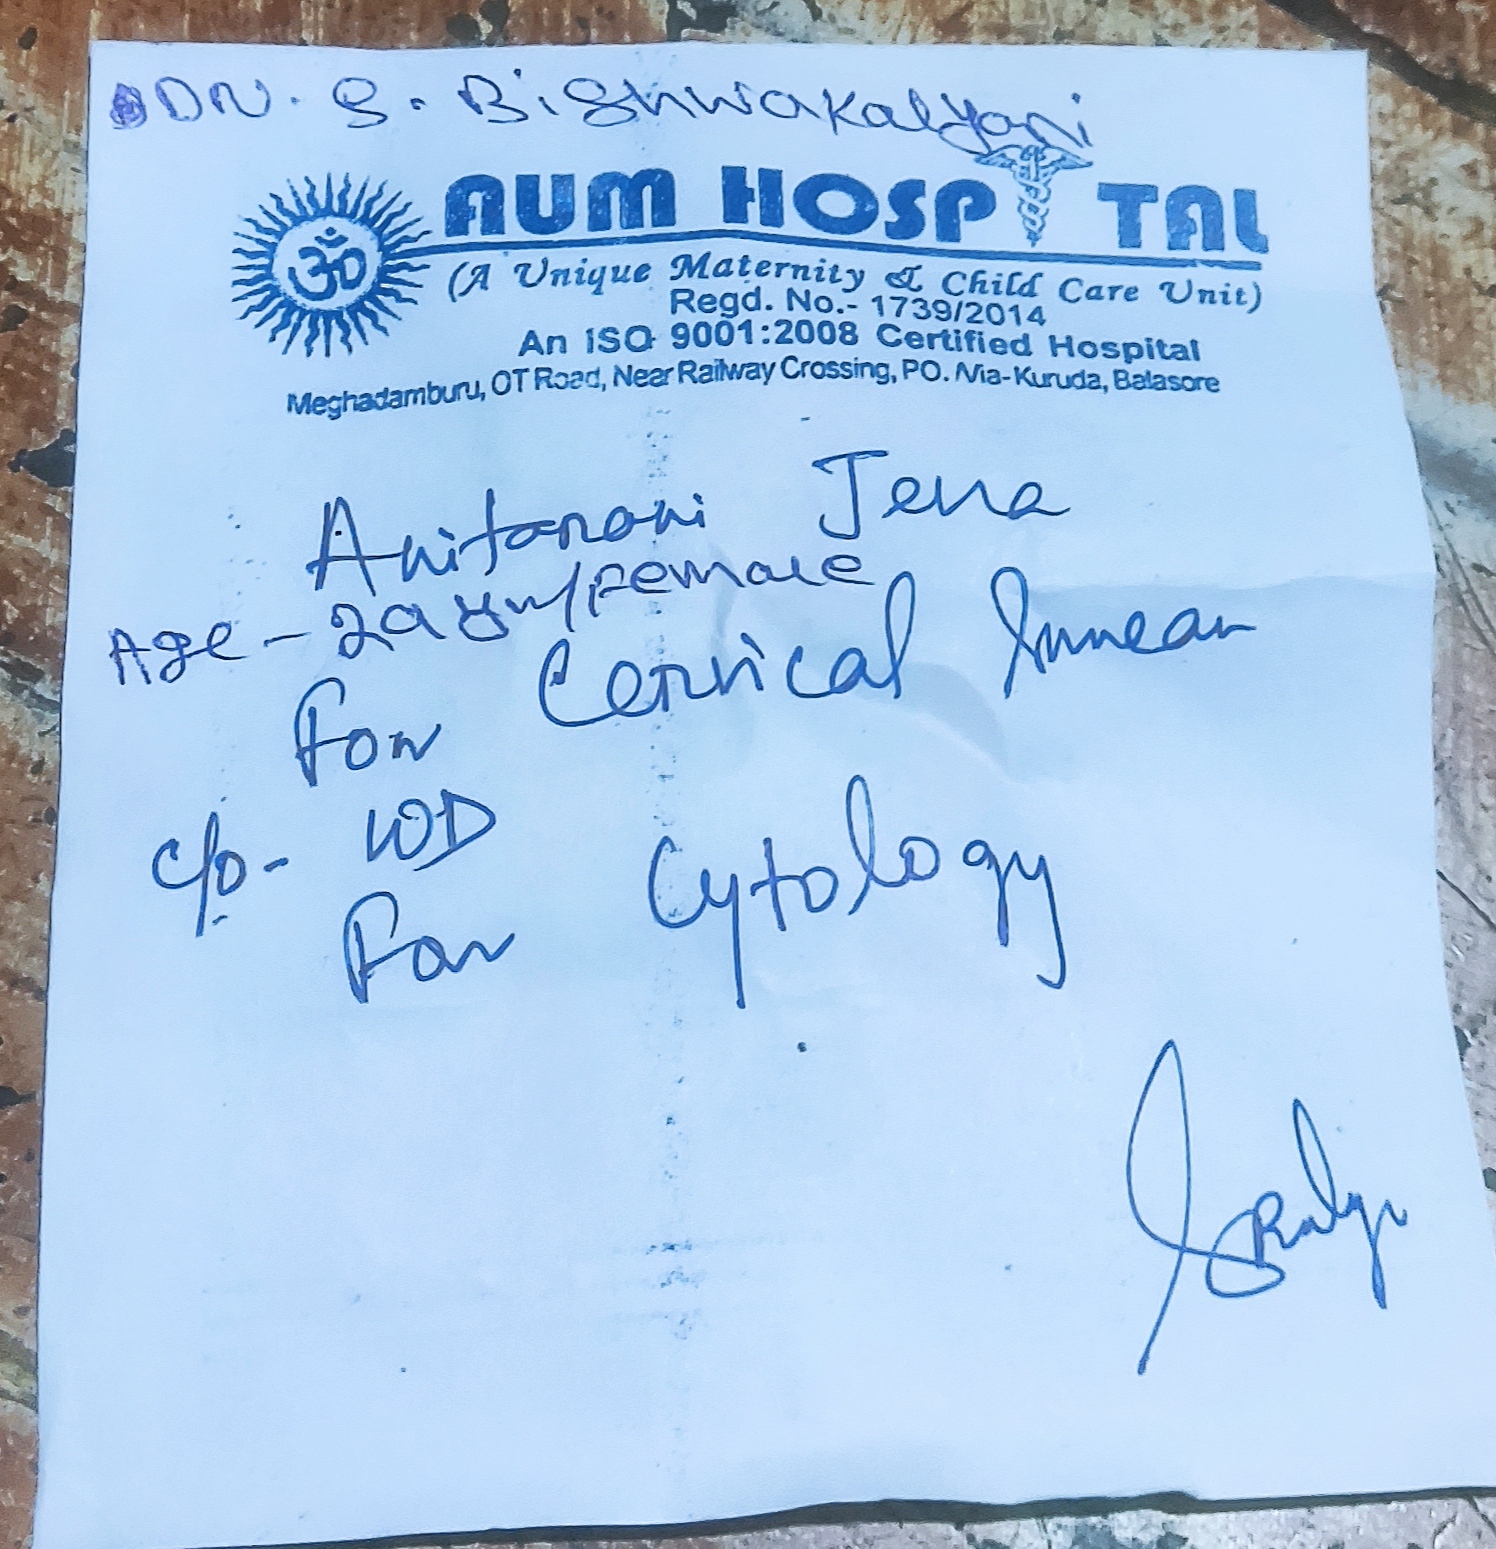 Dr. S. Bishwakalyani
AUM HOSPITAL
(A Unique Maternity & Child Care Unit)
Regd. No.- 1739/2014
An ISO 9001:2008 Certified Hospital
Meghadamburu, OT Road, Near Railway Crossing, PO./Via-Kuruda, Balasore
Anitarani Jena
Age - 29 yr/Female
For Cervical Smear
c/o - WD
For Cytology